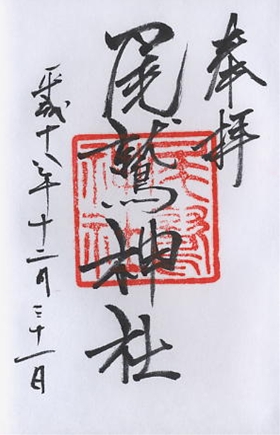 奉拝
尾鷲神社
平成十八年十二月三十一日